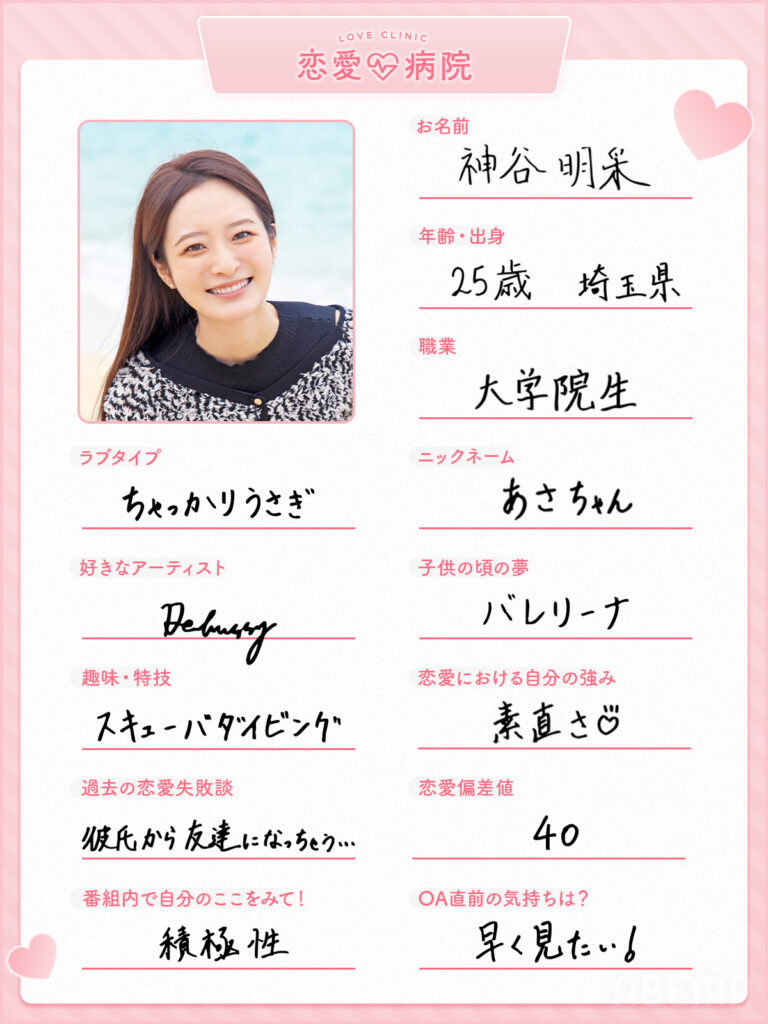 LOVE CLINIC
恋愛病院
お名前
神谷明采
年齢・出身
25歳 埼玉県
職業
大学院生
ラブタイプ
ちゃっかりうさぎ
ニックネーム
あさちゃん
好きなアーティスト
Debussy
子供の頃の夢
バレリーナ
趣味・特技
スキューバダイビング
恋愛における自分の強み
素直さ♡
過去の恋愛失敗談
彼氏から友達になっちゃう…
恋愛偏差値
40
番組内で自分のここをみて！
積極性
OA直前の気持ちは？
早く見たい！
ABEMA